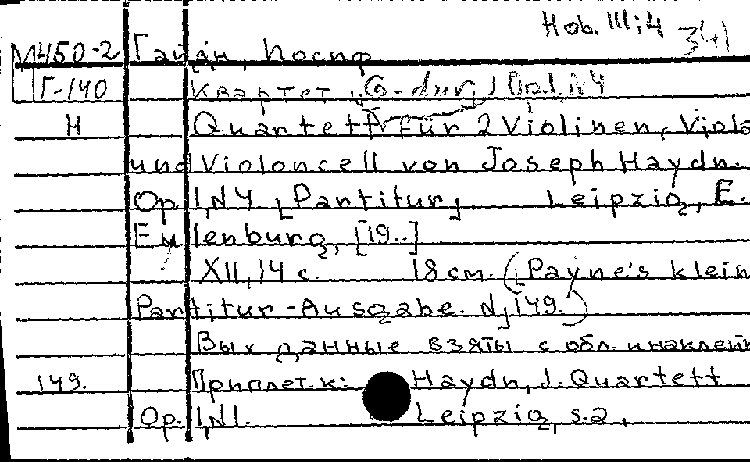 Hob. III:4 341
М450-2 Гайдн, Иосиф
Г-140 Квартет, G-dur, Op.1 N4
H Quartett für 2 Violinen, Viola
und Violoncell von Joseph Haydn.
Op. 1, N4 [Partitur] Leipzig, E.
Eulenburg, [19..]
XII, 14 с. 18 см. (Payne's klein
Partitur-Ausgabe. N, 149.)
Вых данные взяты с обл. и наклейк
149. Приплет к: Haydn, J. Quartett
Op. 1, N1. Leipzig, s.a.